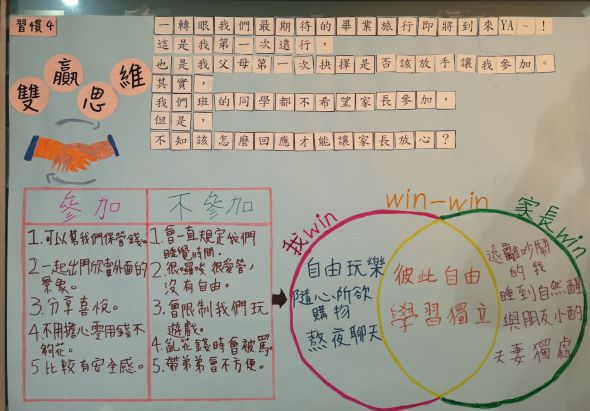 習慣4
雙贏思維
一轉眼我們最期待的畢業旅行即將到來YA~!
這是我第一次遠行,
也是我父母第一次抉擇是否該放手讓我參加。
其實,
我們班的同學都不希望家長參加,
但是,
不知該怎麼回應才能讓家長放心?
參加
1.可以幫我們保管錢。
2.一起出門欣賞外面的
景象。
3.分享喜悅。
4.不用擔心零用錢不
夠花。
5.比較有安全感。
不參加
1.會一直規定我們
睡覺時間。
2.很囉唆很愛管,
沒有自由。
3.會限制我們玩
遊戲。
4.亂花錢時會被罵。
5.帶弟弟會不方便。
我win
自由玩樂
隨心所欲
購物
熬夜聊天
win-win
彼此自由
學習獨立
家長win
遠離吵鬧
的我
睡到自然醒
與朋友小酌
夫妻獨處